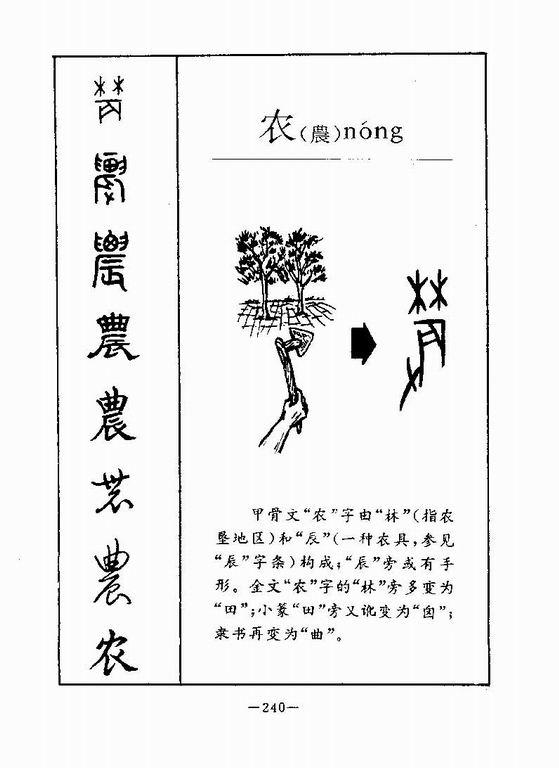 农(農)nóng
甲骨文“农”字由“林”(指农
垦地区)和“辰”(一种农具,参见
“辰”字条)构成;“辰”旁或有手
形。金文“农”字的“林”旁多变为
“田”;小篆“田”旁又讹变为“囟”;
隶书再变为“曲”。
農
農
农
—240—